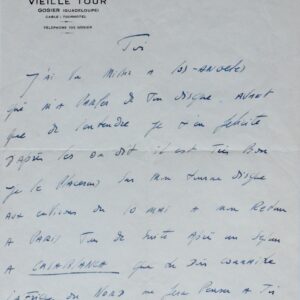 VIEILLE TOUR
GOSIER (GUADELOUPE)
CABLE : TOURHOTEL
TELEPHONE 105 GOSIER
Toi
J'ai lu Miku a LOS-ANGELES
qui m'a Parler de Ton disque, Avant
que de l'entendre je t'en felicite
D'après les on dit il est Très Bon
Je le Placerai sur mon Tourne disque
aux environs du 10 MAI a mon Retour
A PARIS Tout de suite après un sejour
A CASABLANCA que
du NORD me fera Penser A Toi